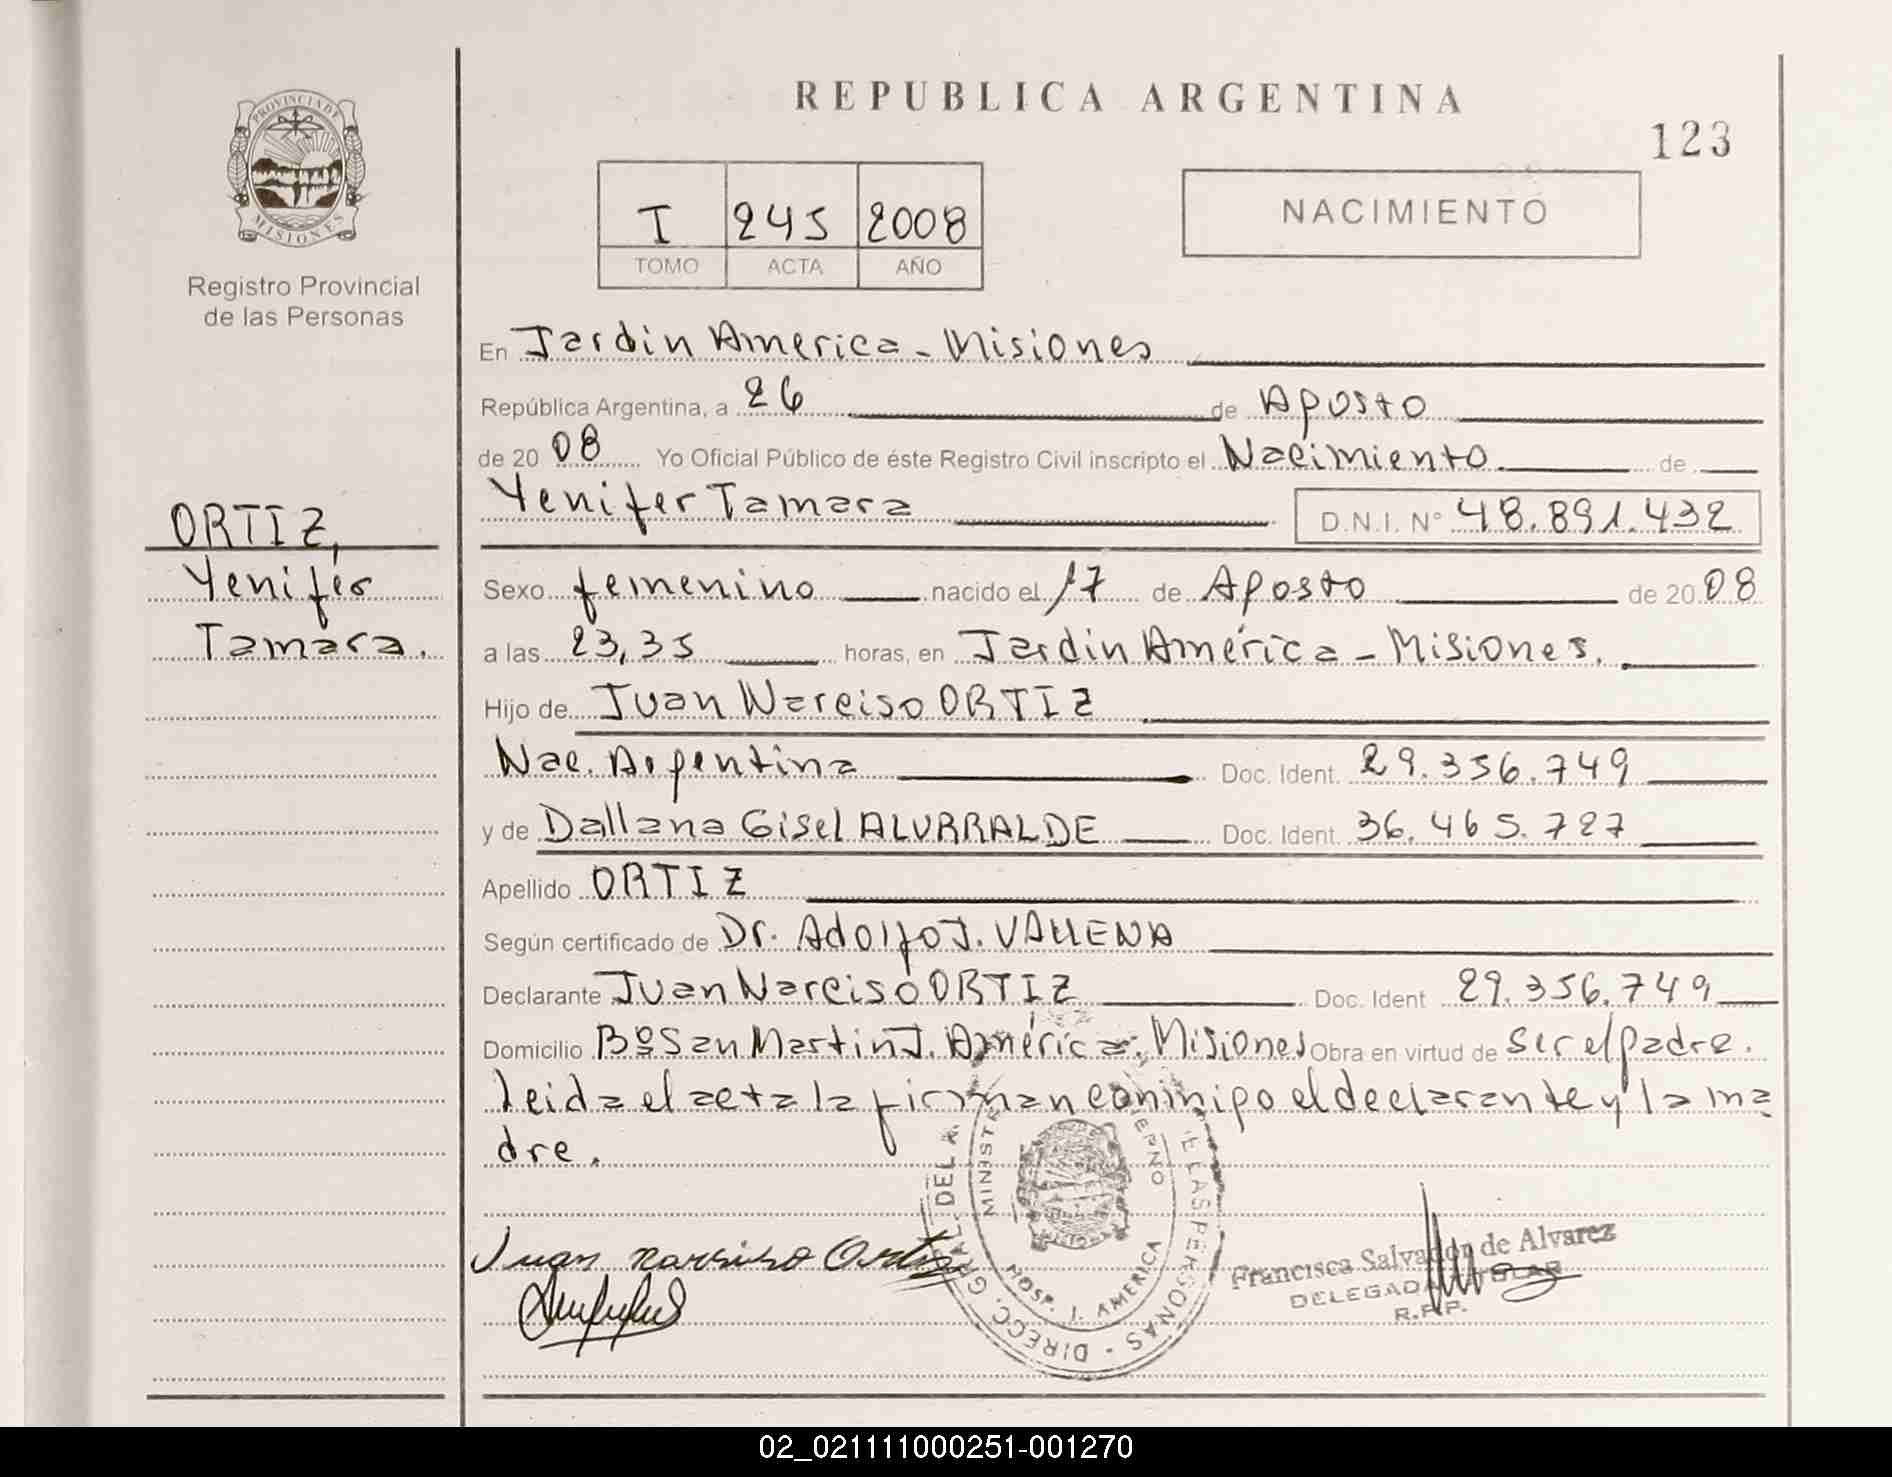 PROVINCIA DE
MISIONES
Registro Provincial
de las Personas
ORTIZ,
Yenifer
Tamara.
REPUBLICA ARGENTINA
123
I 245 2008
TOMO ACTA AÑO
NACIMIENTO
En Jardin America - Misiones
República Argentina, a 26 de Agosto
de 2008 Yo Oficial Público de éste Registro Civil inscripto el Nacimiento de
Yenifer Tamara D.N.I. Nº 48.891.432
Sexo femenino nacido el 17 de Agosto de 2008
a las 23,35 horas, en Jardin América - Misiones.
Hijo de Juan Narciso ORTIZ
Nac. Argentina Doc. Ident. 29.356.749
y de Dallana Gisel ALURRALDE Doc. Ident. 36.465.727
Apellido ORTIZ
Según certificado de Dr. Adolfo J. VALLENA
Declarante Juan Narciso ORTIZ Doc. Ident 29.356.749
Domicilio Bº San Martin J. América - Misiones Obra en virtud de ser el padre.
Leida el acta la firman conmigo el declarante y la ma
dre.
Juan Narsiso Ortiz
DIRECC. GRAL. DEL R. E LAS PERSONAS
MINISTE IERNO
HOSP. J. AMERICA
Francisca Salvador de Alvarez
DELEGADA TITULAR
R.P.P.
02_021111000251-001270